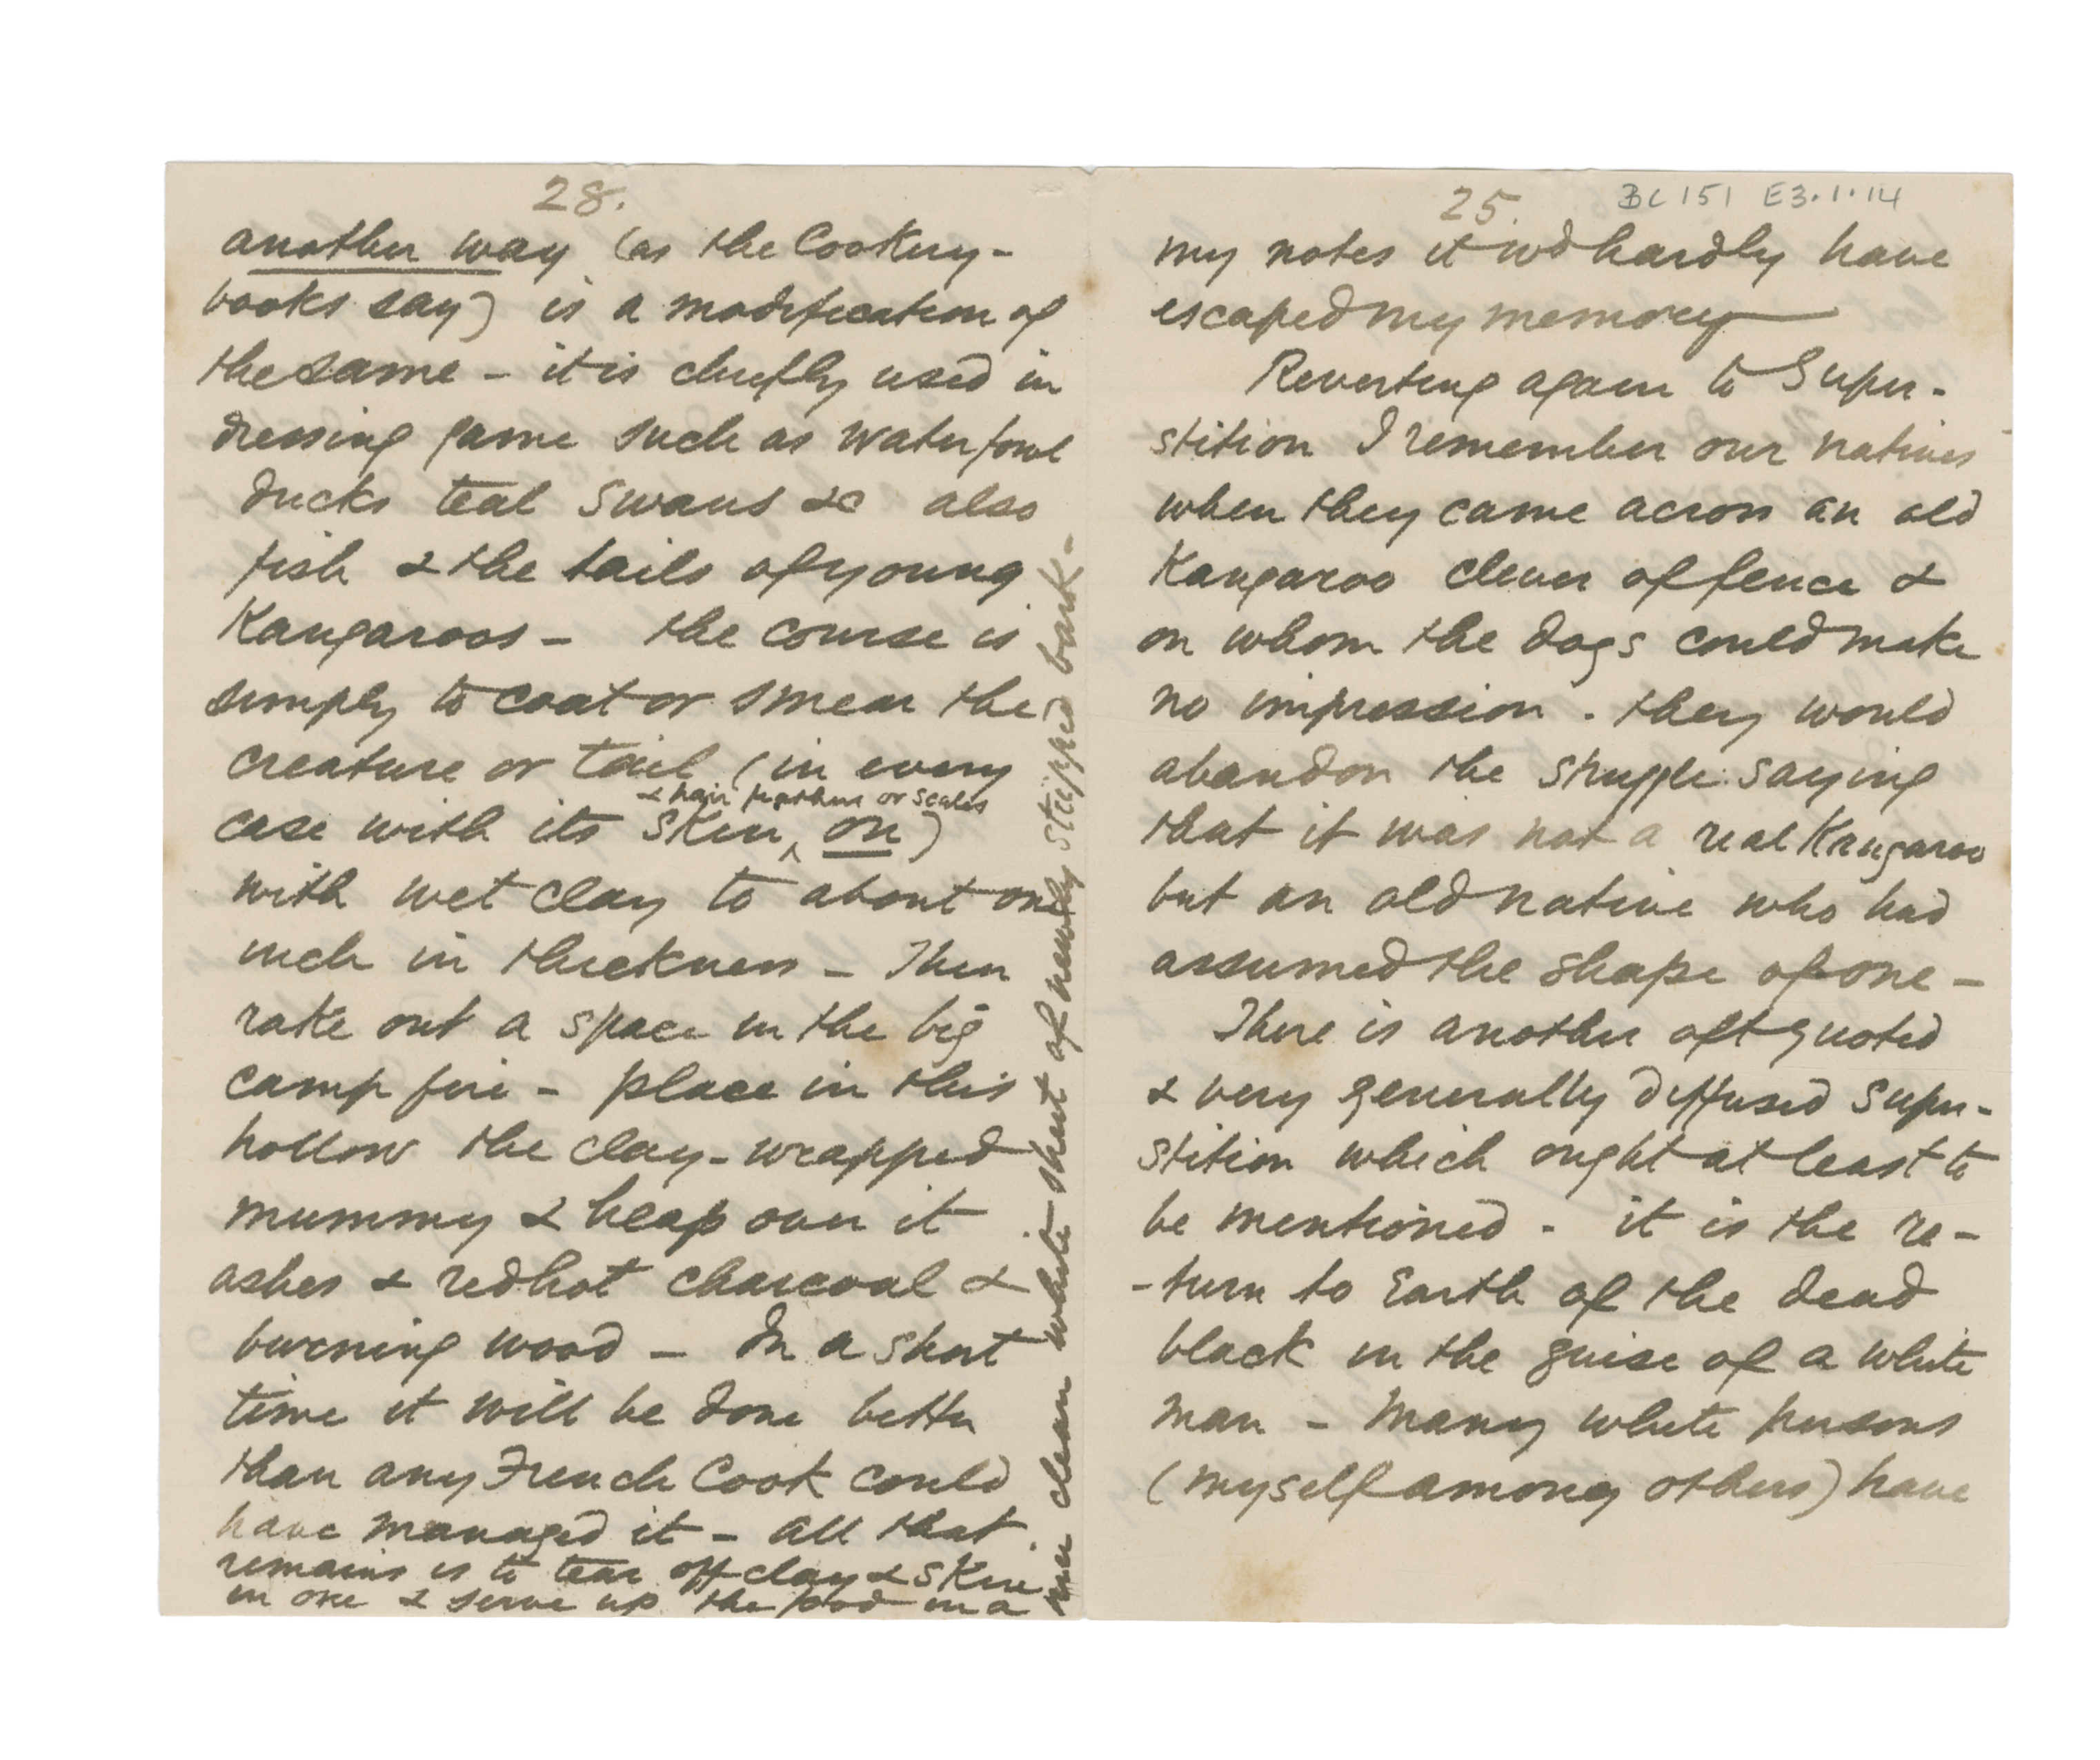 28.
another way (as the Cookery-
books say) is a modification of
the same - it is chiefly used in
dressing game such as Waterfowl
ducks teal Swans &c also
fish & the tails of young
Kangaroos - the course is
simply to coat or smear the
creature or tail (in every
& hair feathers or scales
case with its skin ^ on)
with wet clay to about one
inch in thickness - Then
rake out a space in the big
camp fire - place in this
hollow the clay-wrapped
mummy & heap over it
ashes & redhot charcoal &
burning wood - In a short
time it will be done better
than any French Cook could
have managed it - all that
remains is to tear off clay & skin
in one & serve up the food in a
nice clean white sheet of newly stripped bark -
25.
BC 151 E3.1.14
my notes it wd hardly have
escaped my memory
Reverting again to Super-
stition I remember our natives
when they came across an old
Kangaroo clever of fence &
on whom the dogs could make
no impression. they would
abandon the struggle saying
that it was not a real Kangaroo
but an old native who had
assumed the shape of one -
There is another oft quoted
& very generally diffused Super-
stition which ought at least to
be mentioned - it is the re-
-turn to Earth of the dead
black in the guise of a white
man - Many white persons
(myself among others) have